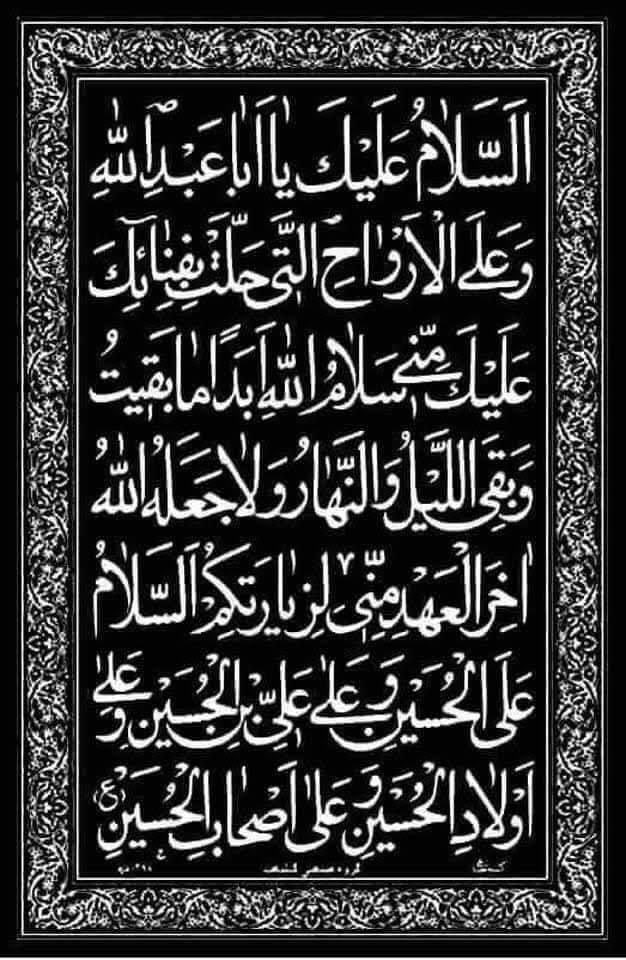 اَلسَّلامُ عَلَیْكَ یا اَبا عَبْدِ اللهِ
وَ عَلَی الْاَرْواحِ الَّتی حَلَّتْ بِفِنائِكَ
عَلَیْكَ مِنّی سَلامُ اللهِ اَبَدًا ما بَقیتُ
وَ بَقِیَ اللَّیْلُ وَ النَّهارُ وَلا جَعَلَهُ اللهُ
اخِرَ الْعَهْدِ مِنّی لِزِیارَتِکُمْ اَلسَّلامُ
عَلَی الْحُسَیْنِ وَ عَلی عَلِیِّ بْنِ الْحُسَیْنِ وَ عَلی
اَوْلادِ الْحُسَیْنِ وَ عَلی اَصْحابِ الْحُسَیْنِ (ع)